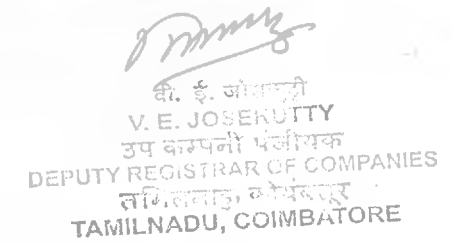 वी. ई. जोसकुट्टी
V. E. JOSEKUTTY
उप कम्पनी पंजीयक
DEPUTY REGISTRAR OF COMPANIES
तमिलनाडु, कोयंबतूर
TAMILNADU, COIMBATORE